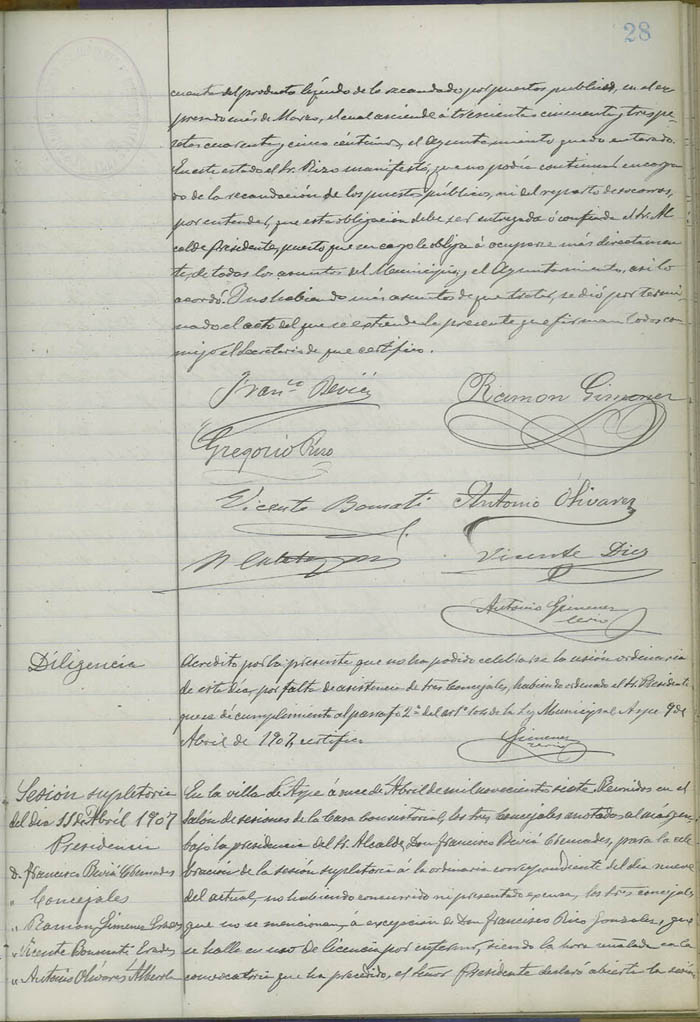 28
cuenta del producto líquido de lo recaudado por puestos publicos, en el ex-
presado mes de Marzo, el cual asciende á trescientas cincuenta y tres pe-
setas cuarenta y cinco céntimos, el Ayuntamiento quedó enterado.
En este estado el Sr. Rizo manifestó, que no podía continuar encarga-
do de la recaudación de los puestos públicos, ni del reparto de socorros,
por entender, que esta obligación debe ser entregada ó confiada al Sr. Al-
calde Presidente, puesto que su cargo le obliga á ocuparse más directamen-
te, de todos los asuntos del Municipio; y el Ayuntamiento, así lo
acordó. Y no habiendo más asuntos de que tratar, se dió por termi-
nado el acto del que se extiende la presente que firman todos con-
migo el Secretario de que certifico.
Fran.co Beviá
Ramon Gimenez
Gregorio Rizo
Vicente Bonmati
Antonio Olivares
Vicente Diez
Antonio Gimenez
srio
Diligencia
Acredito por la presente que no ha podido celebrarse la sesión ordinaria
de este día, por falta de asistencia de tres Concejales, habiendo ordenado el Sr. Presidente
que se dé cumplimiento al parrafo 2º del artº 104 de la Ley Municipal Aspe 9 de
Abril de 1907, certifico
Gimenez
srio
Sesión supletoria
del dia 11 de Abril 1907
Presidencia
D. Francisco Beviá Cremades
Concejales
" Ramon Gimenez Erades
" Vicente Bonmati Erades
" Antonio Olivares Alberola
En la villa de Aspe á once de Abril de mil novecientos siete. Reunidos en el
Salón de sesiones de la Casa Consistorial, los tres Concejales anotados al márgen
bajo la presidencia del Sr. Alcalde, Don Francisco Beviá Cremades, para la cele-
bración de la sesión supletoria á la ordinaria correspondiente del día nueve
del actual, no habiendo concurrido ni presentado excusa, los tres concejales
que no se mencionan, á excepción de Don Francisco Rico Gonzalez, que
se halla en uso de licencia por enfermo, siendo la hora señalada en la
convocatoria que ha precedido, el Señor Presidente declaró abierta la sesión